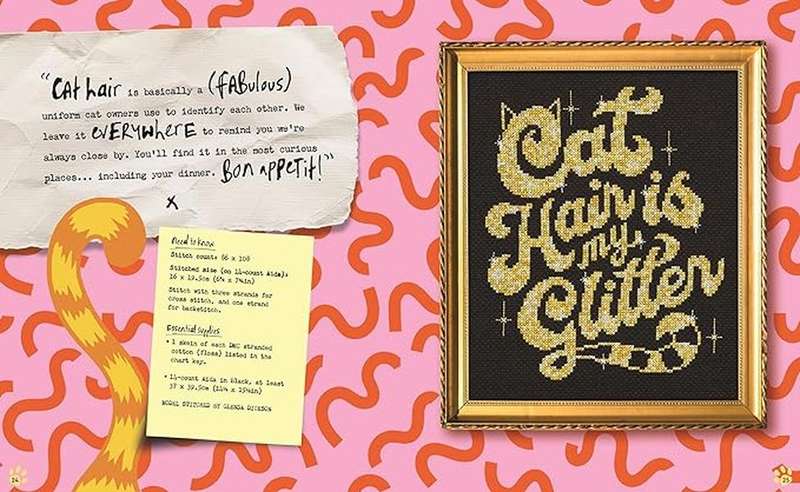 "CAt hair is basically a (fABulous)
uniform cat owners use to identify each other. We
leave it EVERYWHERE to remind you we're
always close by. You'll find it in the most curious
places... including your dinner. Bon appetit!"
x
Need to know
Stitch count: 86 x 108
Stitched size (on 14-count Aida):
16 x 19.5cm (6¼ x 7¾in)
Stitch with three strands for
cross stitch, and one strand
for backstitch.
Essential supplies
• 1 skein of each DMC stranded
cotton (floss) listed in the
chart key.
• 14-count Aida in black, at least
37 x 39.5cm (14½ x 15½in)
MODEL STITCHED BY GLENDA DICKSON
Cat
Hair is
my
Glitter
24
25